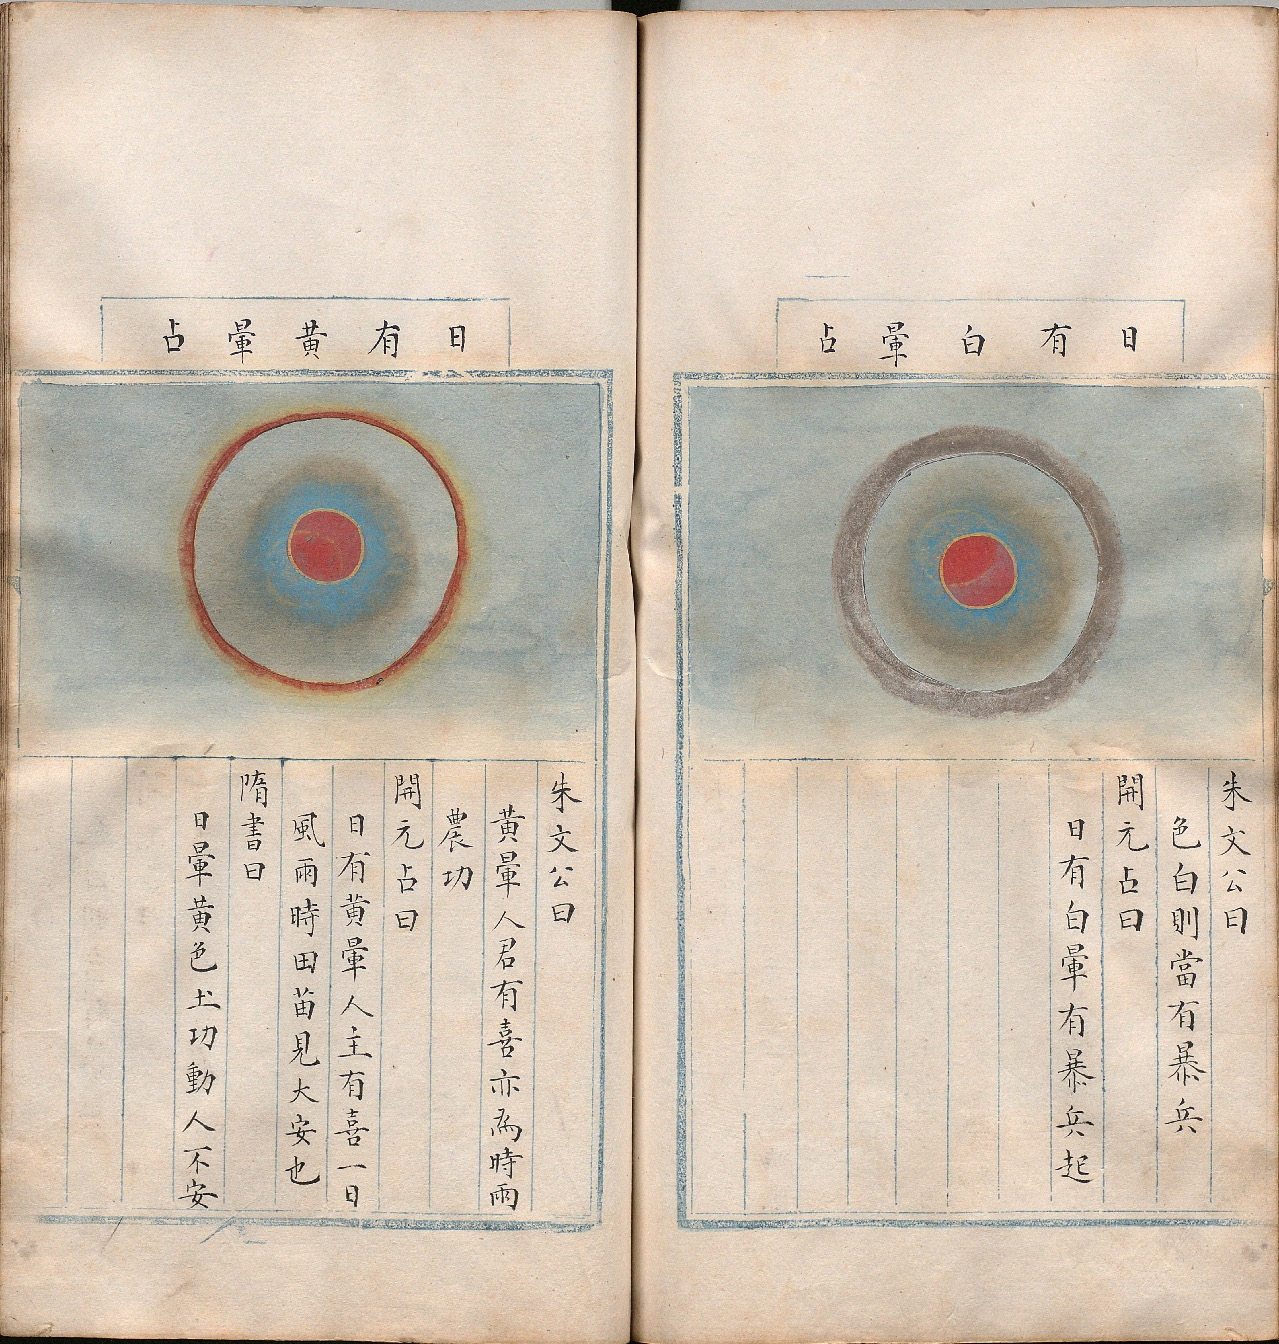 日有白暈占
朱文公曰
色白則當有暴兵
開元占曰
日有白暈有暴兵起
日有黃暈占
朱文公曰
黃暈人君有喜亦為時雨
農功
開元占曰
日有黃暈人主有喜一日
風雨時田苗見大安也
隋書曰
日暈黃色土功動人不安